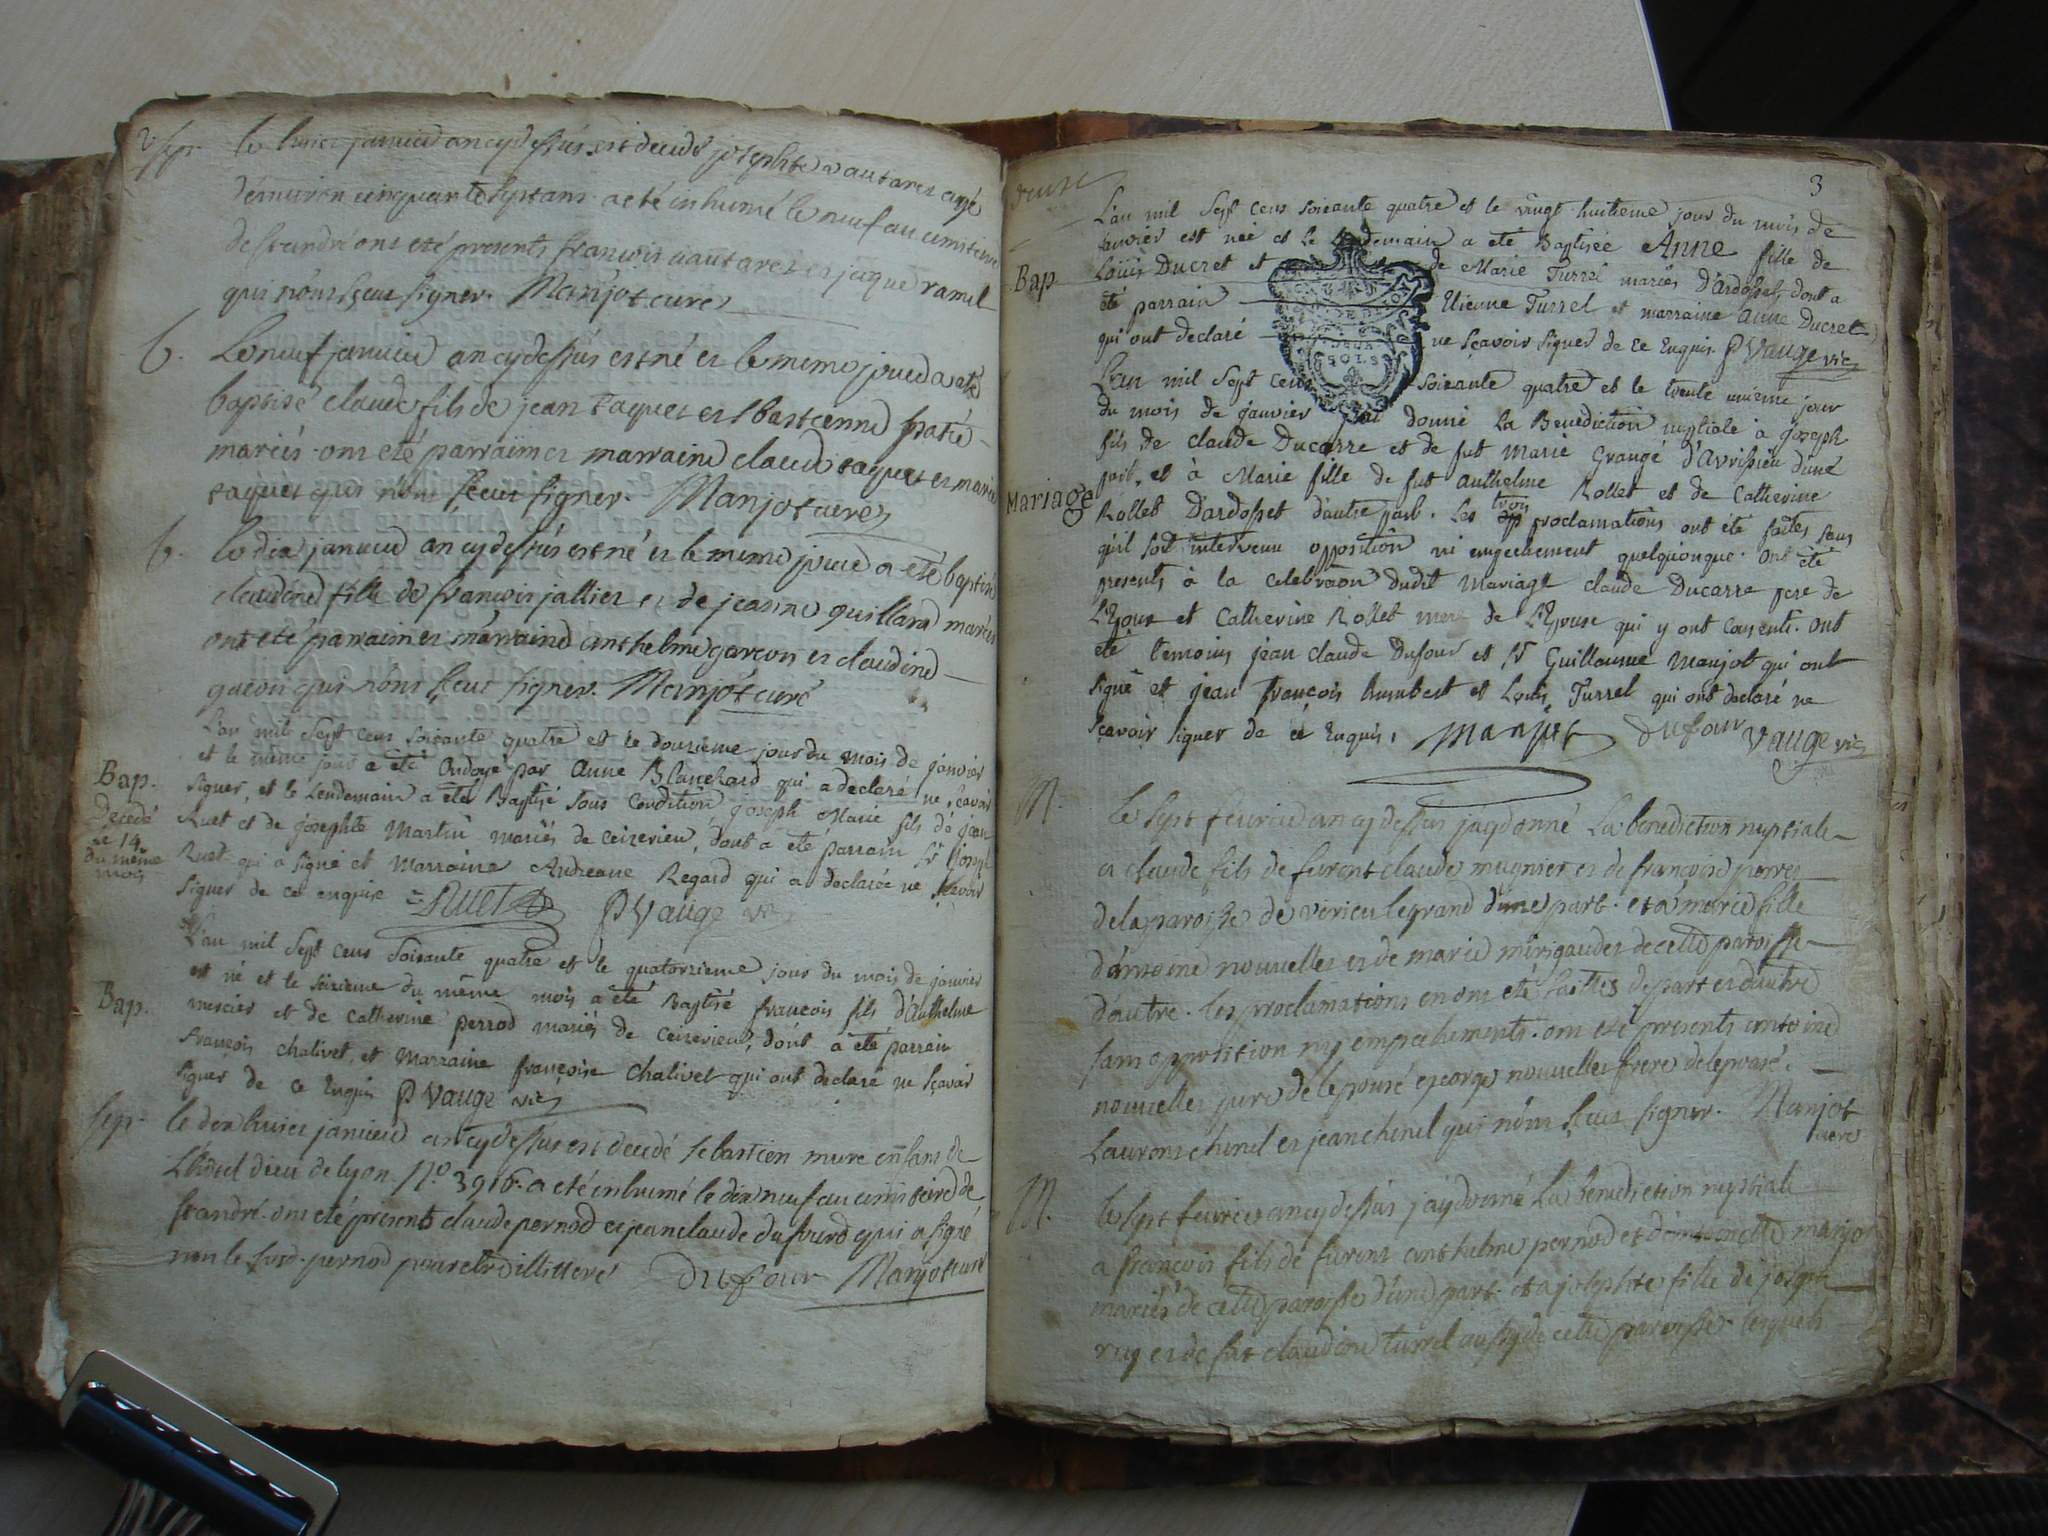 2
Sep. le huict janvier an cy dessus est decedé josephte vautarez agé
d'environ cinquante sept ans a eté inhumé le neuf au cimitiere
de st andré ont eté presents francois vautarez et jaque ramel
qui n'ont sceut signer. Manjot curé
b. Le neuf janvier an cy dessus est né et le meme jour a eté
baptisé claude fils de jean taquet et sbastienne
mariés. ont eté parrain et marraine claude taquet et marie
taquet qui n'ont sceut signer. Manjot curé
b. le dix janvier an cy dessus est né et le meme jour a eté baptisé
claudine fille de francois jallier et de jeanne quillard mariés
ont eté parrain et marraine anthelme garcon et claudine
qui n'ont sceut signer. Manjot curé
L'an mil Sept cens soixante quatre et le douzieme jour du mois de janvier
et le même jour a été ondoyé par Anne Blanchard qui a declaré ne scavoir
Bap. signer, et le Lendemain a été Baptisé sous Condition joseph Marie fils de jean
Decedé le 14 du même mois
Ruet et de josephte Martin mariés de Ceizerieu, dont a été parrain Sr
Ruet qui a signé et Marraine Andreane Regard qui a declarée ne scavoir
signer de ce enquise = Ruet P Vauge vic
L'an mil Sept cens soixante quatre et le quatorzieme jour du mois de janvier
est né et le seizieme du même mois a été Baptisé francois fils d'Anthelme
Bap. mercier et de Catherine perrod mariés de Ceizerieu, dont a été parrain
francois chalivet, et Marraine francoise Chalivet qui ont declaré ne scavoir
signer de ce Enquis P Vauge vic
Sep. le dix huict janvier an cy dessus est decedé sebastien mure enfant de
L'hotel dieu de lyon N° 3916. a eté inhumé le dix neuf au cimitiere de
st andré. ont eté presents claude pernod et jean claude dufour qui a signé
non le susd. pernod pour etre illitteré dufour Manjot curé
3
L'an mil Sept cens soixante quatre et le vingt huitieme jour du mois de
janvier est née et le lendemain a été Baptisée Anne fille de
Bap. Loüis Ducret et de Marie Turrel mariés D'ardosset, dont a
été parrain Etienne Turrel et marraine Anne Ducret
qui ont declaré ne scavoir signer de ce Enquis. P Vauge vic
DEUX
SOLS
L'an mil Sept cens soixante quatre et le trente unieme jour
du mois de janvier j'ai donné La Benediction nuptiale à joseph
fils de claude Ducarre et de fut Marie Grangé d'avrissieu d'une
part, et à Marie fille de fut Anthelme Rollet et de Catherine
Mariage Rollet D'ardosset d'autre part. Les trois proclamations ont été faites sans
qu'il soit intervenu opposition ni empechement quelquonque. ont été
presents à la Celebraon dudit Mariage claude Ducarre pere de
L'Epoux et Catherine Rollet mere de L'Epouse qui y ont consenti. ont
été temoins jean claude Dufour et Sr Guillaume Manjot qui ont
signé et jean francois humbert et Louis Turrel qui ont declaré ne
scavoir signer de ce Enquis, Manjot dufour Vauge vic
M. le sept fevrier an cy dessus jay donné La benediction nuptiale
a claude fils de furent claude mugnier et de francoise perret
de la paroisse de virieu le grand d'une part. et a marie fille
d'antoine nouvelles et de marie mirigaudet de cette paroisse
d'autre. les proclamations en ont eté faittes de part et d'autre
sans opposition ny empechements. ont eté presents antoine
nouvelles pere de lepousé et george nouvelles frere de lepousé.
Laurent chenel et jean chenel qui n'ont sceut signer. Manjot
curé
M. le sept fevrier an cy dessus jay donné La benediction nuptiale
a francois fils de furent anthelme pernod et d'antoinette manjot
mariés de cette paroisse d'une part. et a josephte fille de joseph
ruy et de fut claudine turrel aussy de cette paroisse. lesquels